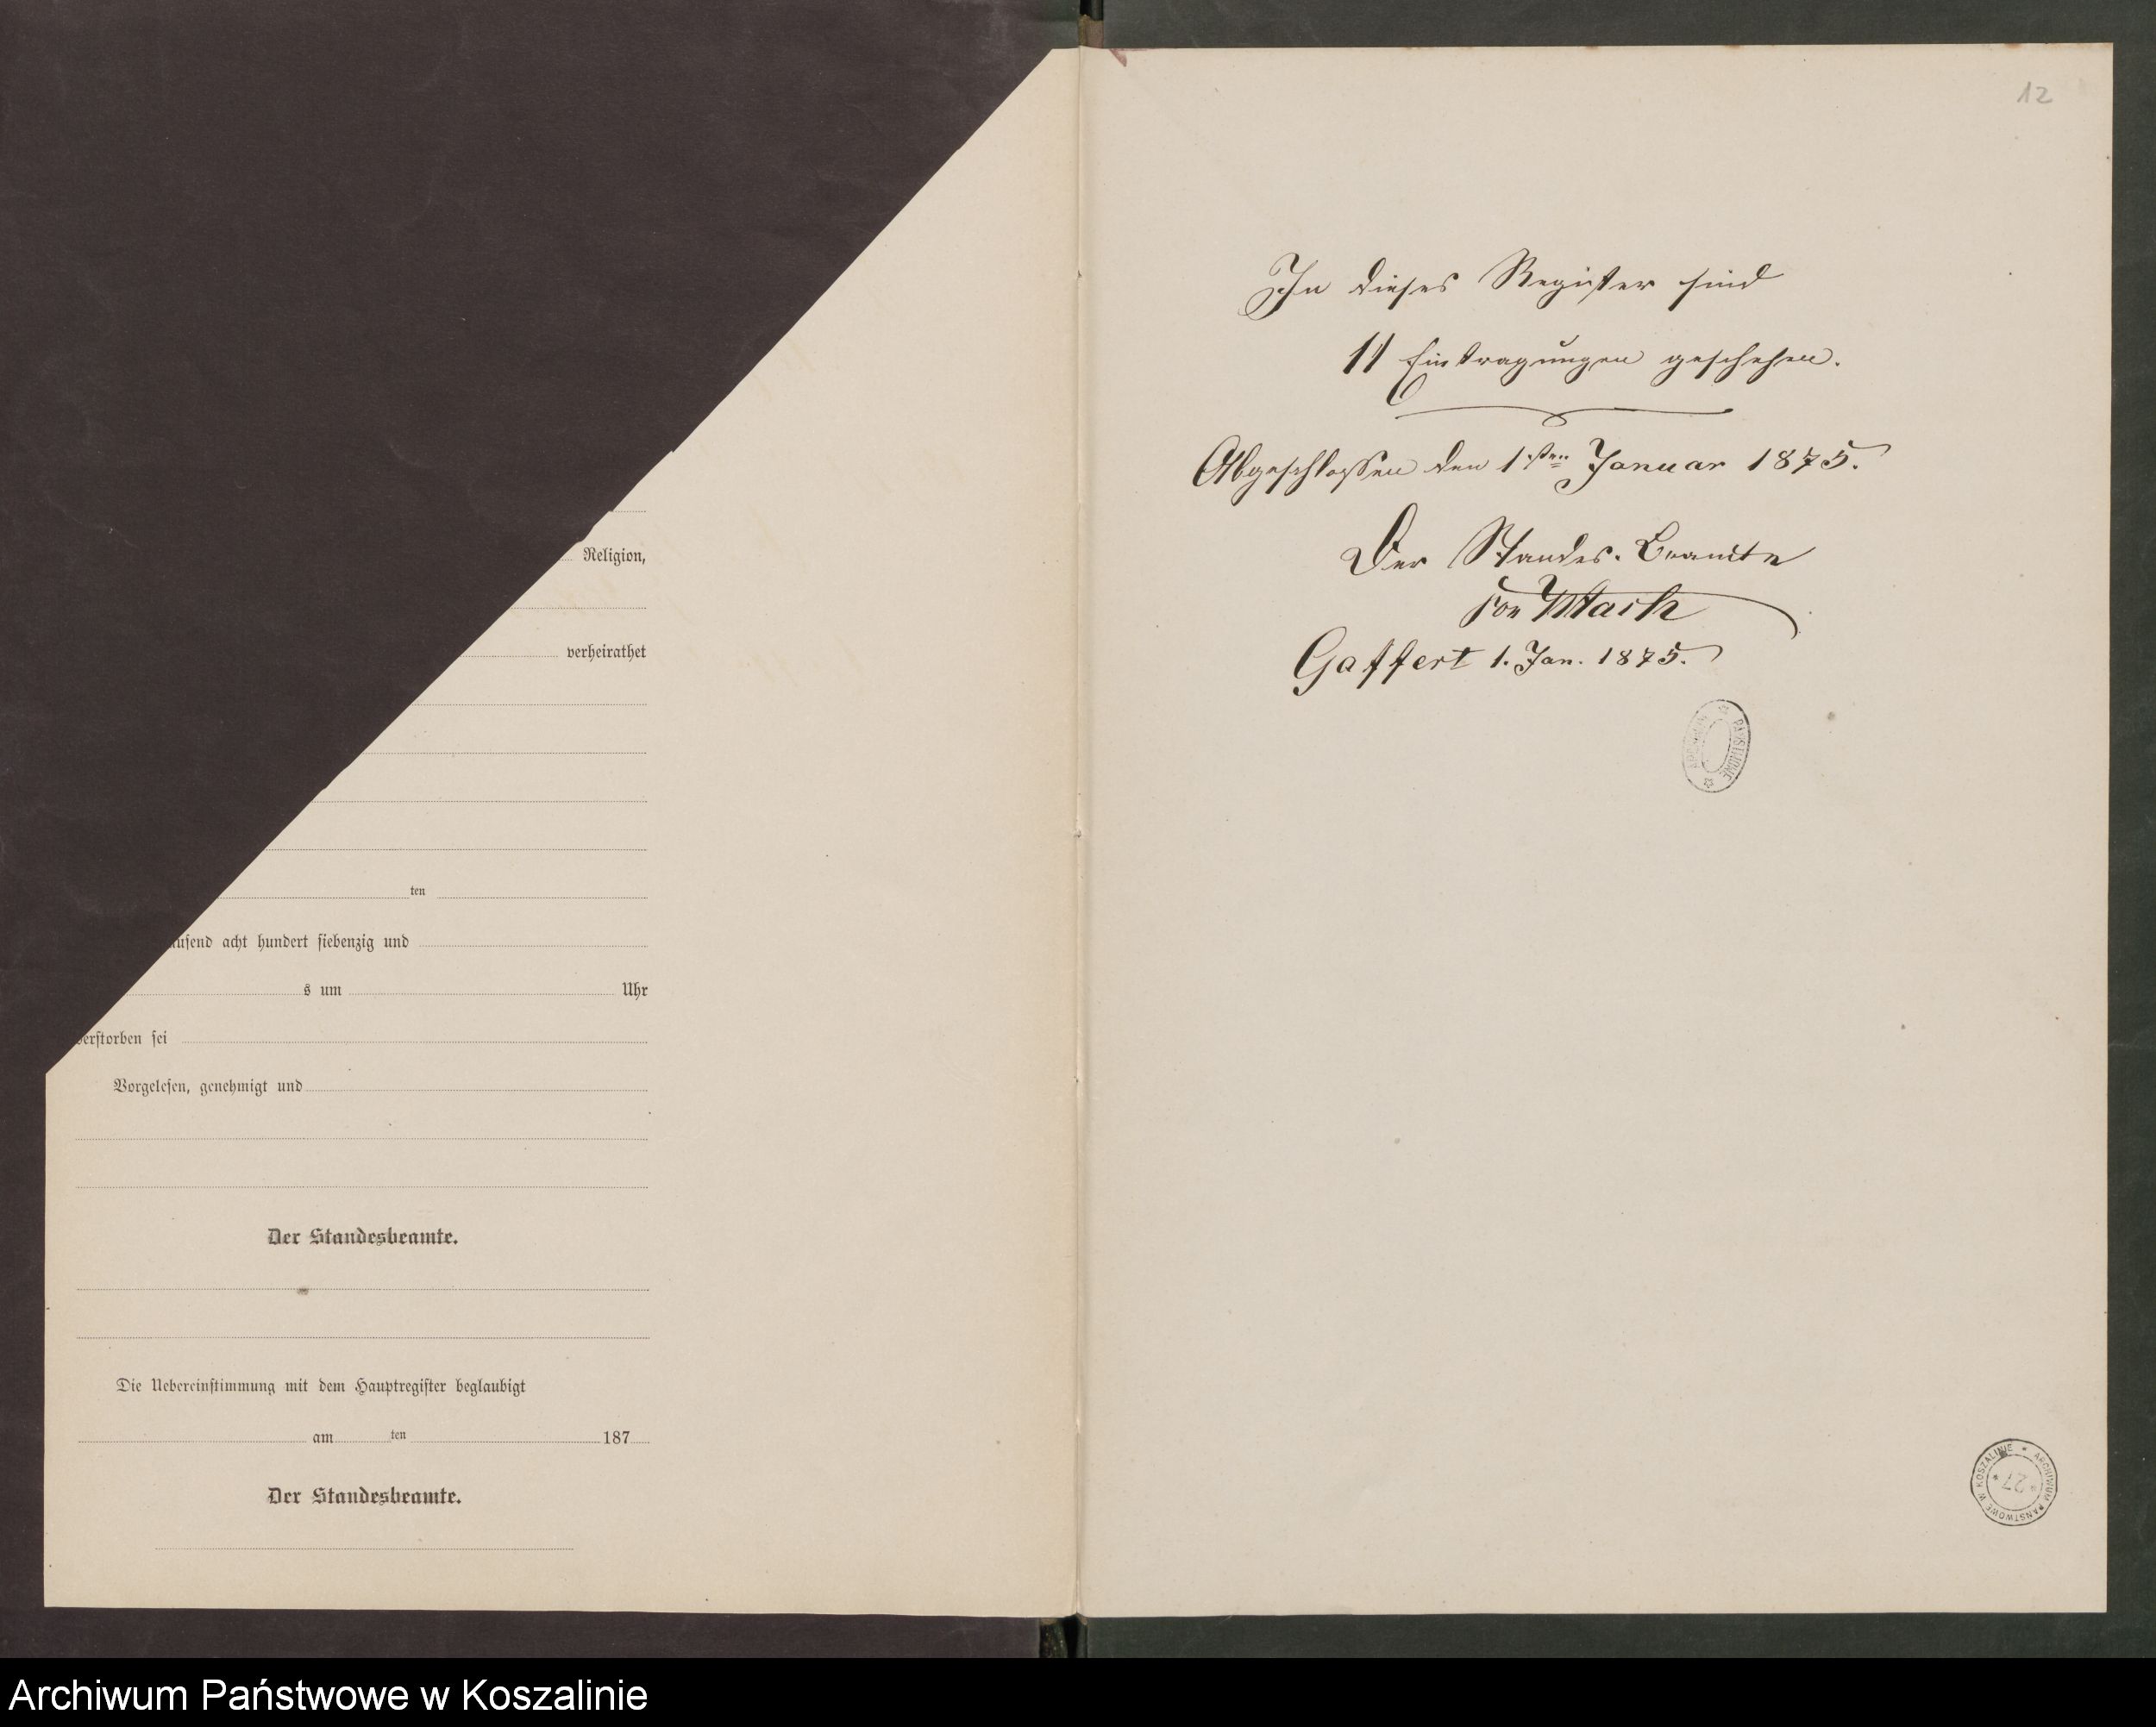 Religion,
verheirathet
ten
ausend acht hundert siebenzig und
s um Uhr
verstorben sei
Vorgelesen, genehmigt und
Der Standesbeamte.
Die Uebereinstimmung mit dem Hauptregister beglaubigt
am ten 187
Der Standesbeamte.
12
In dieses Register sind
11 Eintragungen geschehen.
Abgeschlossen den 1sten Januar 1875.
Der Standes-Beamte
von Mach
Gaffert 1. Jan. 1875.
ARCHIWUM PAŃSTWOWE
ARCHIWUM PAŃSTWOWE W KOSZALINIE
27
Archiwum Państwowe w Koszalinie